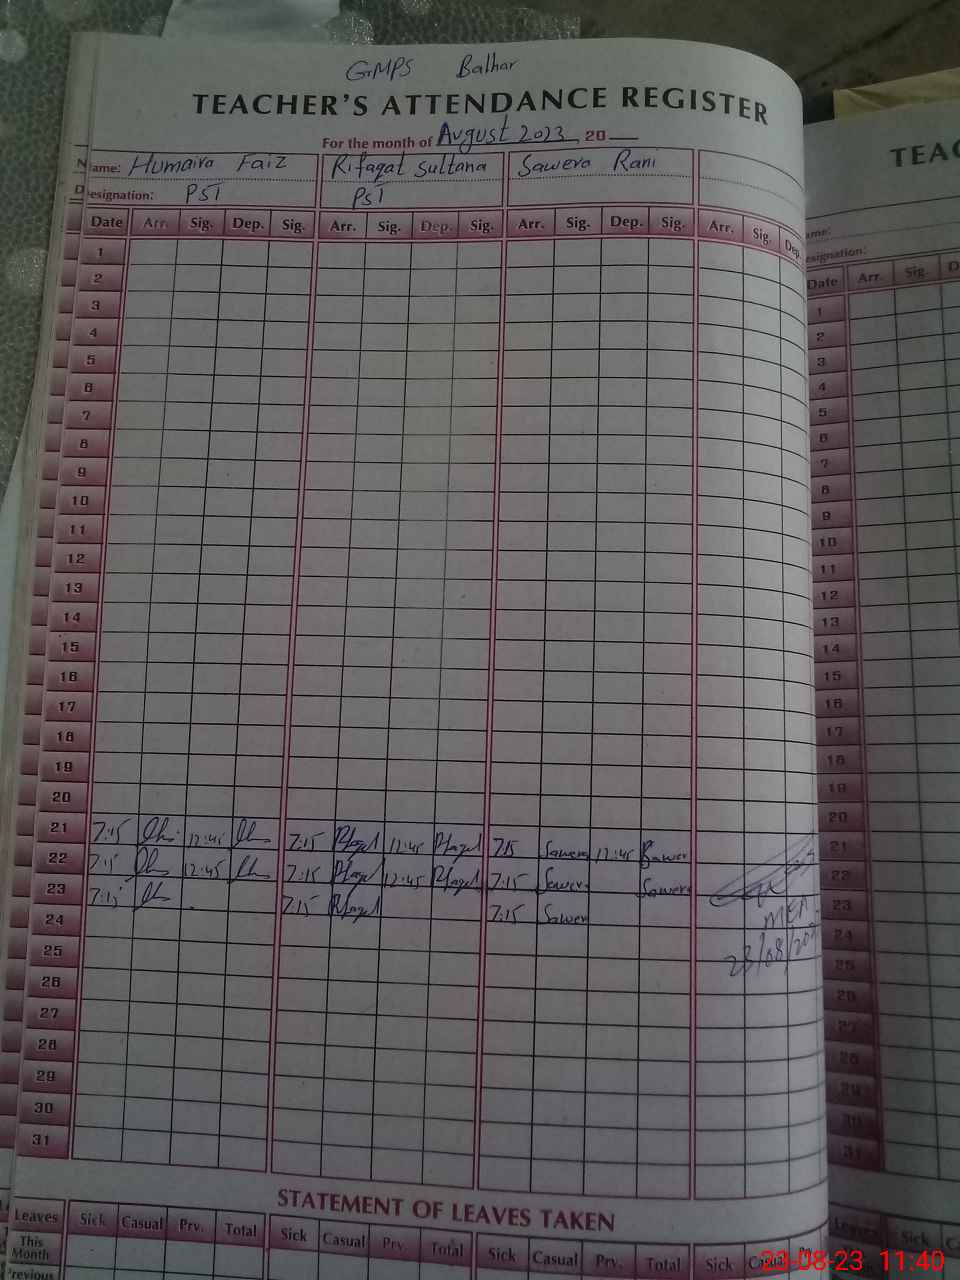 GMPS Balhar
TEACHER'S ATTENDANCE REGISTER
For the month of August 2023, 20
Name: Humaira Faiz Rifaqat Sultana Sawera Rani
Designation: PST PST
Date Arr. Sig. Dep. Sig. Arr. Sig. Dep. Sig. Arr. Sig. Dep. Sig. Arr. Sig. Dep.
1
2
3
4
5
6
7
8
9
10
11
12
13
14
15
16
17
18
19
20
21 7:15 12:45 7:15 12:45 7:15 Sawera 12:45 Sawera
22 7:15 12:45 7:15 12:45 7:15 Sawera Sawera
23 7:15 7:15 7:15 Sawera
24
25
26
27
28
29
30
31
MEA
23/08/20
STATEMENT OF LEAVES TAKEN
Leaves Sick Casual Prv. Total Sick Casual Prv. Total Sick Casual Prv. Total Sick Casual
This Month
Previous
TEAC
Name:
Designation:
Date Arr. Sig. D
1
2
3
4
5
6
7
8
9
10
11
12
13
14
15
16
17
18
19
20
21
22
23
24
25
26
27
28
29
30
31
Leaves Sick
23-08-23 11:40